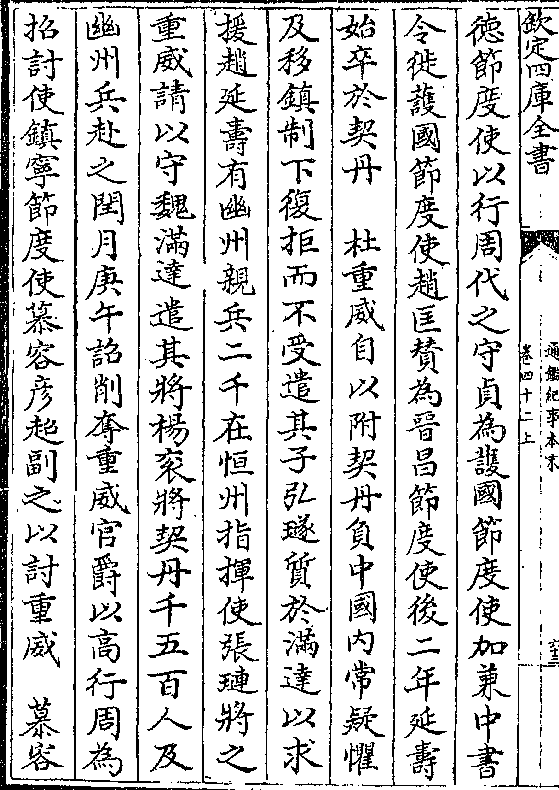 欽定四庫全書
通鑑紀事本末
卷四十二上
德節度使以行周代之守貞為護國節度使加兼中書
令徙護國節度使趙匡贊為晉昌節度使後二年延壽
始卒於契丹　杜重威自以附契丹負中國內常疑懼
及移鎮制下復拒而不受遣其子弘璲質於滿達以求
援趙延壽有幽州親兵二千在恒州指揮使張璉將之
重威請以守魏滿達遣其將楊衮將契丹千五百人及
幽州兵赴之閏月庚午詔削奪重威官爵以高行周為
招討使鎮寧節度使慕容彦超副之以討重威　慕容